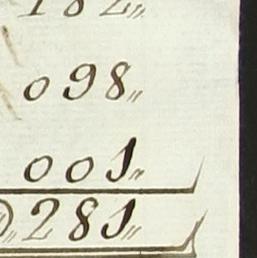 182„
098„
001„
„281„